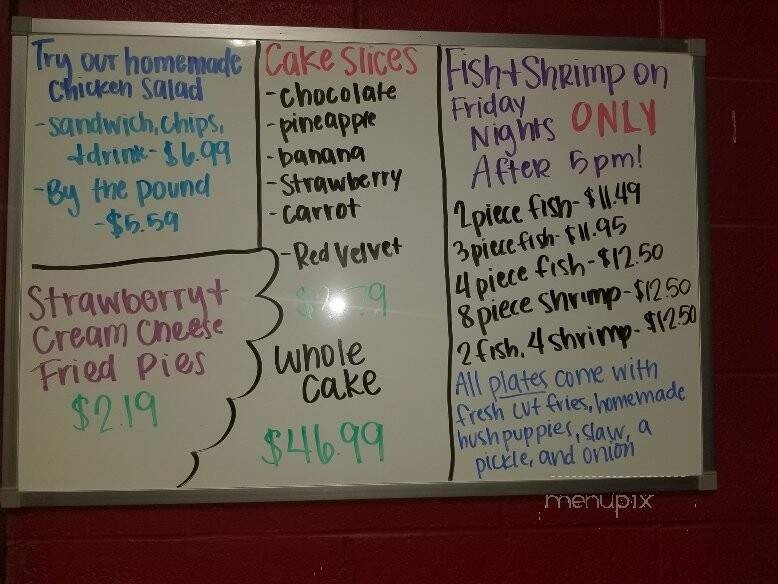 Try our homemade
Chicken Salad
-sandwich, chips,
+drink-$6.99
-By the pound
-$5.59
Strawberry +
Cream Cheese
Fried Pies
$2.19
Cake Slices
-chocolate
-pineapple
-banana
-Strawberry
-carrot
-Red Velvet
Whole
Cake
$46.99
Fish+Shrimp on
Friday
Nights ONLY
After 5pm!
2 piece fish-$11.49
3 piece fish-$11.95
4 piece fish-$12.50
8 piece shrimp-$12.50
2 fish, 4 shrimp-$12.50
All plates come with
fresh cut fries, homemade
hushpuppies, slaw, a
pickle, and onion
menupix